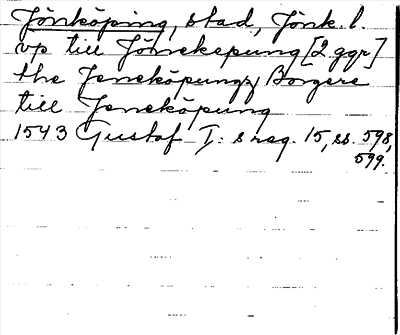 Jönköping, stad, Jönk. l.
vp till Jönekepung [2 ggr]
the Jeneköpungz Borgere
till Jeneköpung
1543 Gustaf I:s reg. 15, ss. 598,
599.